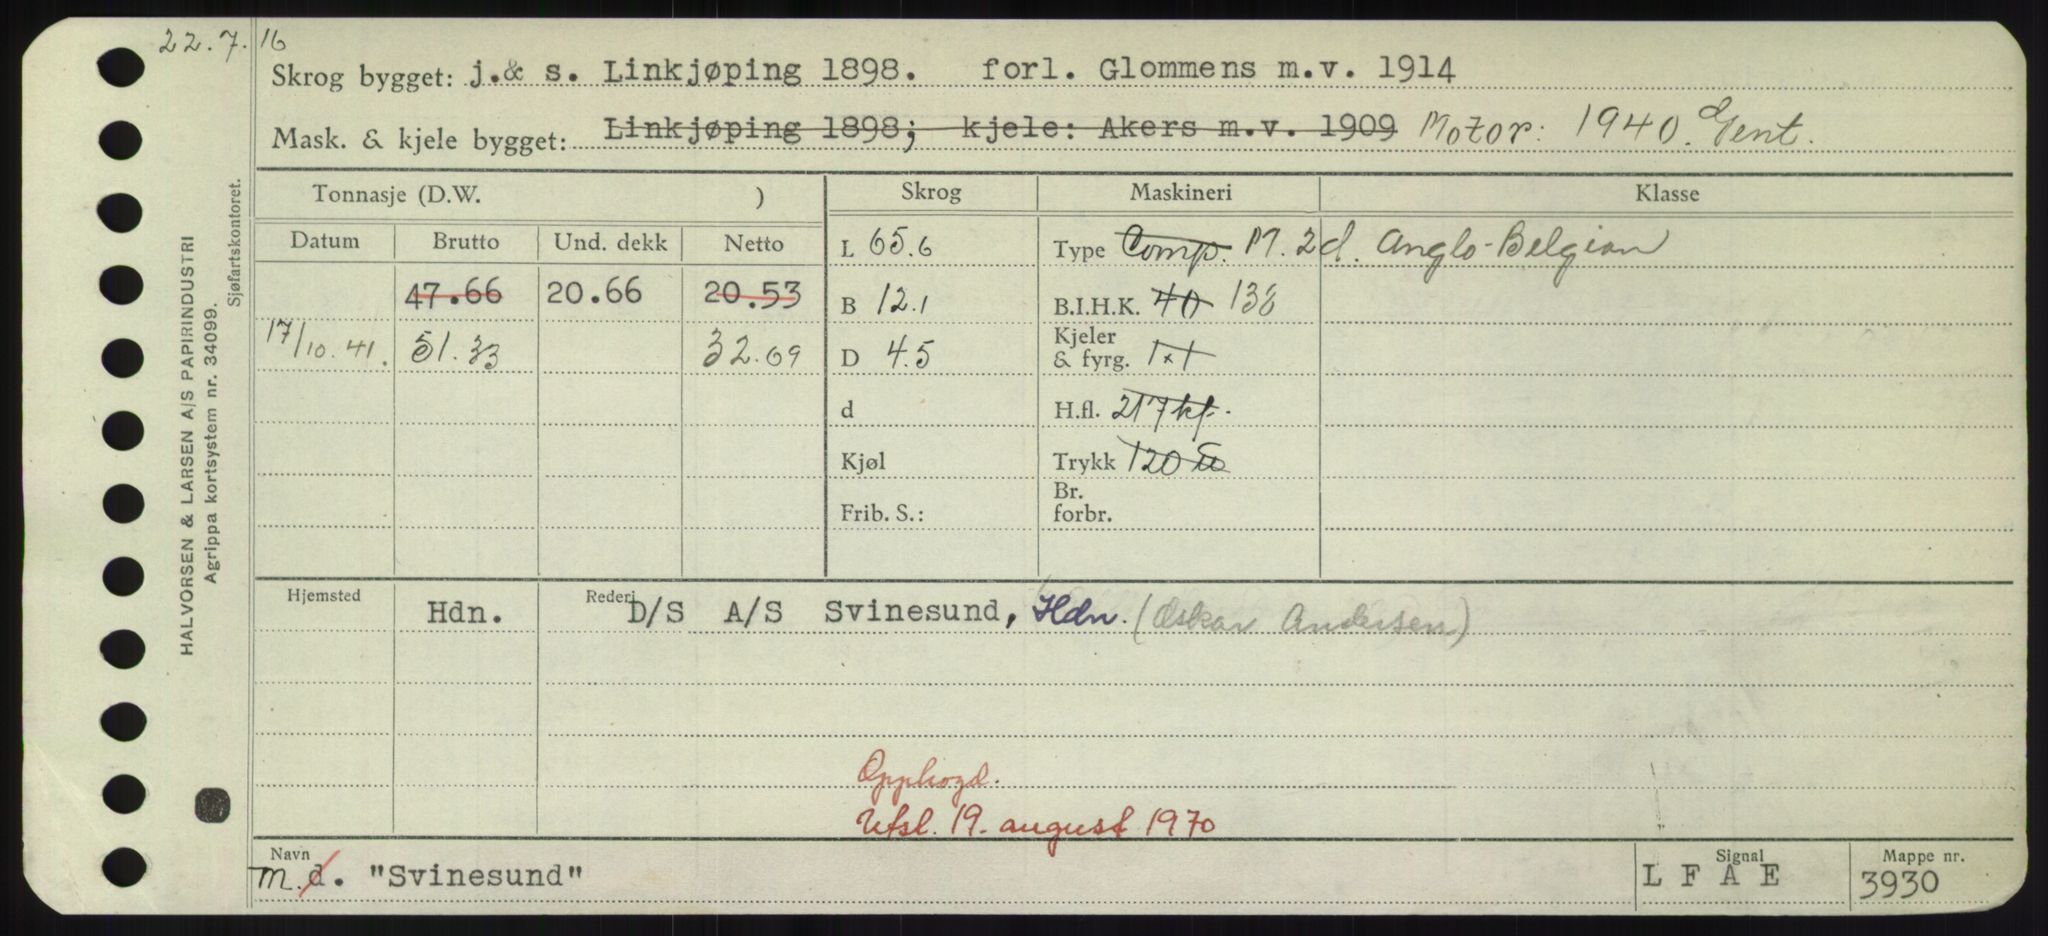 22.7.16
Skrog bygget: j.& s. Linkjøping 1898. forl. Glommens m.v. 1914
Mask. & kjele bygget: Linkjøping 1898; kjele: Akers m.v. 1909 Motor: 1940. Gent.
Tonnasje (D.W. ) Skrog Maskineri Klasse
Datum Brutto Und. dekk Netto L 65.6 Type Comp. M. 2d. Anglo-Belgian
47.66 20.66 20.53 B 12.1 B.I.H.K. 40 138
17/10.41. 51.33 32.69 D 4.5 Kjeler & fyrg. 1x1
d H.fl. 217 kf.
Kjøl Trykk 120 lb
Frib. S.: Br. forbr.
Hjemsted Hdn. Rederi D/S A/S Svinesund, Hdn. (Oskar Andersen)
Opphogd.
Utsl. 19. august 1970
Navn m.d. "Svinesund" Signal L F A E Mappe nr. 3930
HALVORSEN & LARSEN A/S PAPIRINDUSTRI
Agrippa kortsystem nr. 34099.
Sjøfartskontoret.